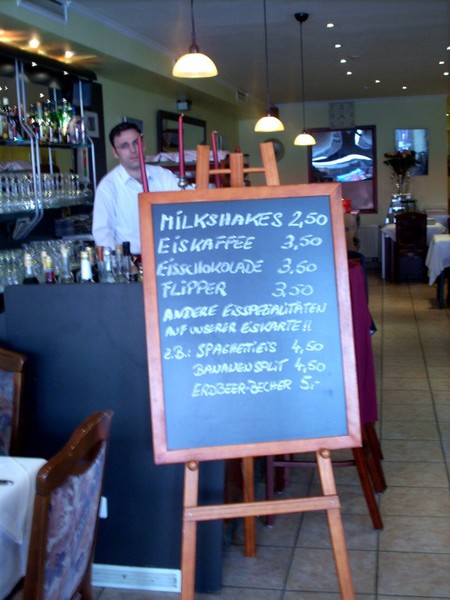 MILKSHAKES 2,50
EISKAFFEE 3,50
EISSCHOKOLADE 3,50
FLIPPER 3,50
ANDERE EISSPEZIALITÄTEN
AUF UNSERER EISKARTE!!
z.B.: SPAGHETTIEIS 4,50
BANANENSPLIT 4,50
ERDBEER-BECHER 5,-